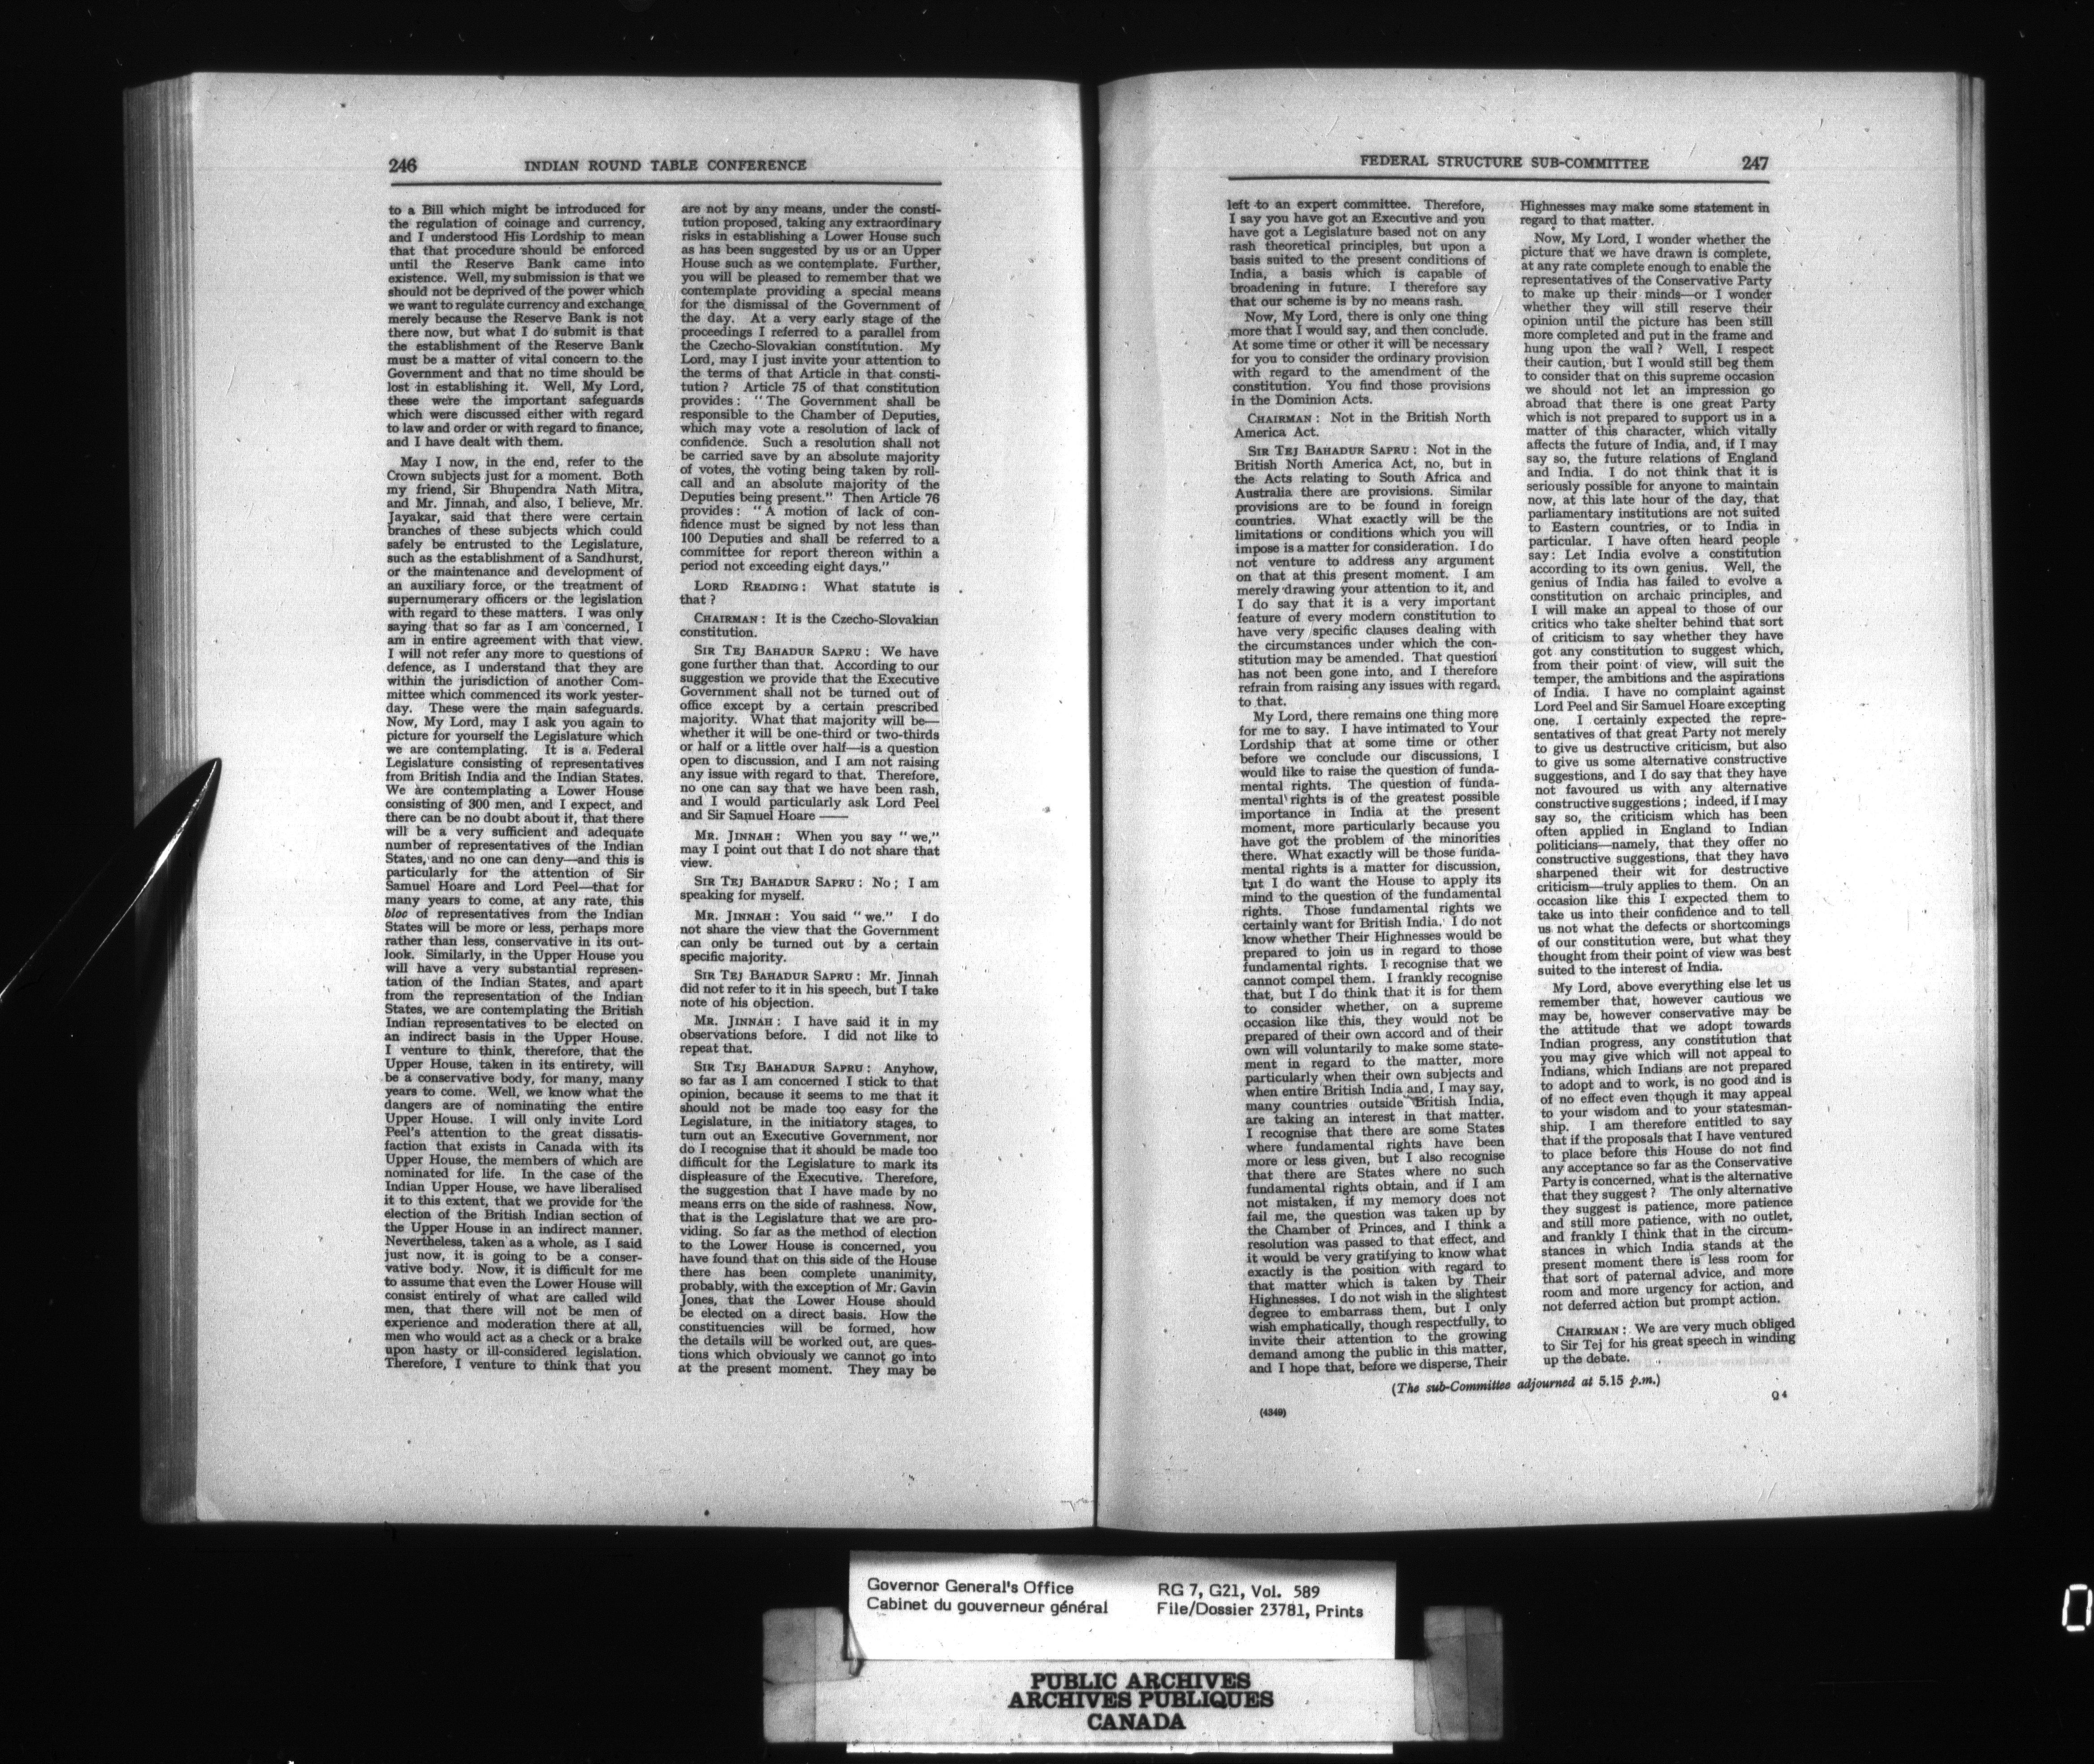 246 INDIAN ROUND TABLE CONFERENCE
to a Bill which might be introduced for
the regulation of coinage and currency,
and I understood His Lordship to mean
that that procedure should be enforced
until the Reserve Bank came into
existence. Well, my submission is that we
should not be deprived of the power which
we want to regulate currency and exchange
merely because the Reserve Bank is not
there now, but what I do submit is that
the establishment of the Reserve Bank
must be a matter of vital concern to the
Government and that no time should be
lost in establishing it. Well, My Lord,
these were the important safeguards
which were discussed either with regard
to law and order or with regard to finance,
and I have dealt with them.
May I now, in the end, refer to the
Crown subjects just for a moment. Both
my friend, Sir Bhupendra Nath Mitra,
and Mr. Jinnah, and also, I believe, Mr.
Jayakar, said that there were certain
branches of these subjects which could
safely be entrusted to the Legislature,
such as the establishment of a Sandhurst,
or the maintenance and development of
an auxiliary force, or the treatment of
supernumerary officers or the legislation
with regard to these matters. I was only
saying that so far as I am concerned, I
am in entire agreement with that view.
I will not refer any more to questions of
defence, as I understand that they are
within the jurisdiction of another Com-
mittee which commenced its work yester-
day. These were the main safeguards.
Now, My Lord, may I ask you again to
picture for yourself the Legislature which
we are contemplating. It is a Federal
Legislature consisting of representatives
from British India and the Indian States.
We are contemplating a Lower House
consisting of 300 men, and I expect, and
there can be no doubt about it, that there
will be a very sufficient and adequate
number of representatives of the Indian
States, and no one can deny—and this is
particularly for the attention of Sir
Samuel Hoare and Lord Peel—that for
many years to come, at any rate, this
bloc of representatives from the Indian
States will be more or less, perhaps more
rather than less, conservative in its out-
look. Similarly, in the Upper House you
will have a very substantial represen-
tation of the Indian States, and apart
from the representation of the Indian
States, we are contemplating the British
Indian representatives to be elected on
an indirect basis in the Upper House.
I venture to think, therefore, that the
Upper House, taken in its entirety, will
be a conservative body, for many, many
years to come. Well, we know what the
dangers are of nominating the entire
Upper House. I will only invite Lord
Peel's attention to the great dissatis-
faction that exists in Canada with its
Upper House, the members of which are
nominated for life. In the case of the
Indian Upper House, we have liberalised
it to this extent, that we provide for the
election of the British Indian section of
the Upper House in an indirect manner.
Nevertheless, taken as a whole, as I said
just now, it is going to be a conser-
vative body. Now, it is difficult for me
to assume that even the Lower House will
consist entirely of what are called wild
men, that there will not be men of
experience and moderation there at all,
men who would act as a check or a brake
upon hasty or ill-considered legislation.
Therefore, I venture to think that you
are not by any means, under the consti-
tution proposed, taking any extraordinary
risks in establishing a Lower House such
as has been suggested by us or an Upper
House such as we contemplate. Further,
you will be pleased to remember that we
contemplate providing a special means
for the dismissal of the Government of
the day. At a very early stage of the
proceedings I referred to a parallel from
the Czecho-Slovakian constitution. My
Lord, may I just invite your attention to
the terms of that Article in that consti-
tution ? Article 75 of that constitution
provides : "The Government shall be
responsible to the Chamber of Deputies,
which may vote a resolution of lack of
confidence. Such a resolution shall not
be carried save by an absolute majority
of votes, the voting being taken by roll-
call and an absolute majority of the
Deputies being present." Then Article 76
provides : "A motion of lack of con-
fidence must be signed by not less than
100 Deputies and shall be referred to a
committee for report thereon within a
period not exceeding eight days."
LORD READING : What statute is
that ?
CHAIRMAN : It is the Czecho-Slovakian
constitution.
SIR TEJ BAHADUR SAPRU : We have
gone further than that. According to our
suggestion we provide that the Executive
Government shall not be turned out of
office except by a certain prescribed
majority. What that majority will be—
whether it will be one-third or two-thirds
or half or a little over half—is a question
open to discussion, and I am not raising
any issue with regard to that. Therefore,
no one can say that we have been rash,
and I would particularly ask Lord Peel
and Sir Samuel Hoare ——
MR. JINNAH : When you say "we,"
may I point out that I do not share that
view.
SIR TEJ BAHADUR SAPRU : No ; I am
speaking for myself.
MR. JINNAH : You said "we." I do
not share the view that the Government
can only be turned out by a certain
specific majority.
SIR TEJ BAHADUR SAPRU : Mr. Jinnah
did not refer to it in his speech, but I take
note of his objection.
MR. JINNAH : I have said it in my
observations before. I did not like to
repeat that.
SIR TEJ BAHADUR SAPRU : Anyhow,
so far as I am concerned I stick to that
opinion, because it seems to me that it
should not be made too easy for the
Legislature, in the initiatory stages, to
turn out an Executive Government, nor
do I recognise that it should be made too
difficult for the Legislature to mark its
displeasure of the Executive. Therefore,
the suggestion that I have made by no
means errs on the side of rashness. Now,
that is the Legislature that we are pro-
viding. So far as the method of election
to the Lower House is concerned, you
have found that on this side of the House
there has been complete unanimity,
probably, with the exception of Mr. Gavin
Jones, that the Lower House should
be elected on a direct basis. How the
constituencies will be formed, how
the details will be worked out, are ques-
tions which obviously we cannot go into
at the present moment. They may be
FEDERAL STRUCTURE SUB-COMMITTEE 247
left to an expert committee. Therefore,
I say you have got an Executive and you
have got a Legislature based not on any
rash theoretical principles, but upon a
basis suited to the present conditions of
India, a basis which is capable of
broadening in future. I therefore say
that our scheme is by no means rash.
Now, My Lord, there is only one thing
more that I would say, and then conclude.
At some time or other it will be necessary
for you to consider the ordinary provision
with regard to the amendment of the
constitution. You find those provisions
in the Dominion Acts.
CHAIRMAN : Not in the British North
America Act.
SIR TEJ BAHADUR SAPRU : Not in the
British North America Act, no, but in
the Acts relating to South Africa and
Australia there are provisions. Similar
provisions are to be found in foreign
countries. What exactly will be the
limitations or conditions which you will
impose is a matter for consideration. I do
not venture to address any argument
on that at this present moment. I am
merely drawing your attention to it, and
I do say that it is a very important
feature of every modern constitution to
have very specific clauses dealing with
the circumstances under which the con-
stitution may be amended. That question
has not been gone into, and I therefore
refrain from raising any issues with regard
to that.
My Lord, there remains one thing more
for me to say. I have intimated to Your
Lordship that at some time or other
before we conclude our discussions, I
would like to raise the question of funda-
mental rights. The question of funda-
mental rights is of the greatest possible
importance in India at the present
moment, more particularly because you
have got the problem of the minorities
there. What exactly will be those funda-
mental rights is a matter for discussion,
but I do want the House to apply its
mind to the question of the fundamental
rights. Those fundamental rights we
certainly want for British India. I do not
know whether Their Highnesses would be
prepared to join us in regard to those
fundamental rights. I recognise that we
cannot compel them. I frankly recognise
that, but I do think that it is for them
to consider whether, on a supreme
occasion like this, they would not be
prepared of their own accord and of their
own will voluntarily to make some state-
ment in regard to the matter, more
particularly when their own subjects and
when entire British India and, I may say,
many countries outside British India,
are taking an interest in that matter.
I recognise that there are some States
where fundamental rights have been
more or less given, but I also recognise
that there are States where no such
fundamental rights obtain, and if I am
not mistaken, if my memory does not
fail me, the question was taken up by
the Chamber of Princes, and I think a
resolution was passed to that effect, and
it would be very gratifying to know what
exactly is the position with regard to
that matter which is taken by Their
Highnesses. I do not wish in the slightest
degree to embarrass them, but I only
wish emphatically, though respectfully, to
invite their attention to the growing
demand among the public in this matter,
and I hope that, before we disperse, Their
Highnesses may make some statement in
regard to that matter.
Now, My Lord, I wonder whether the
picture that we have drawn is complete,
at any rate complete enough to enable the
representatives of the Conservative Party
to make up their minds—or I wonder
whether they will still reserve their
opinion until the picture has been still
more completed and put in the frame and
hung upon the wall ? Well, I respect
their caution, but I would still beg them
to consider that on this supreme occasion
we should not let an impression go
abroad that there is one great Party
which is not prepared to support us in a
matter of this character, which vitally
affects the future of India, and, if I may
say so, the future relations of England
and India. I do not think that it is
seriously possible for anyone to maintain
now, at this late hour of the day, that
parliamentary institutions are not suited
to Eastern countries, or to India in
particular. I have often heard people
say : Let India evolve a constitution
according to its own genius. Well, the
genius of India has failed to evolve a
constitution on archaic principles, and
I will make an appeal to those of our
critics who take shelter behind that sort
of criticism to say whether they have
got any constitution to suggest which,
from their point of view, will suit the
temper, the ambitions and the aspirations
of India. I have no complaint against
Lord Peel and Sir Samuel Hoare excepting
one. I certainly expected the repre-
sentatives of that great Party not merely
to give us destructive criticism, but also
to give us some alternative constructive
suggestions, and I do say that they have
not favoured us with any alternative
constructive suggestions ; indeed, if I may
say so, the criticism which has been
often applied in England to Indian
politicians—namely, that they offer no
constructive suggestions, that they have
sharpened their wit for destructive
criticism—truly applies to them. On an
occasion like this I expected them to
take us into their confidence and to tell
us not what the defects or shortcomings
of our constitution were, but what they
thought from their point of view was best
suited to the interest of India.
My Lord, above everything else let us
remember that, however cautious we
may be, however conservative may be
the attitude that we adopt towards
Indian progress, any constitution that
you may give which will not appeal to
Indians, which Indians are not prepared
to adopt and to work, is no good and is
of no effect even though it may appeal
to your wisdom and to your statesman-
ship. I am therefore entitled to say
that if the proposals that I have ventured
to place before this House do not find
any acceptance so far as the Conservative
Party is concerned, what is the alternative
that they suggest ? The only alternative
they suggest is patience, more patience
and still more patience, with no outlet,
and frankly I think that in the circum-
stances in which India stands at the
present moment there is less room for
that sort of paternal advice, and more
room and more urgency for action, and
not deferred action but prompt action.
CHAIRMAN : We are very much obliged
to Sir Tej for his great speech in winding
up the debate.
(The sub-Committee adjourned at 5.15 p.m.)
(4349) Q 4
Governor General's Office RG 7, G21, Vol. 589
Cabinet du gouverneur général File/Dossier 23781, Prints
PUBLIC ARCHIVES
ARCHIVES PUBLIQUES
CANADA